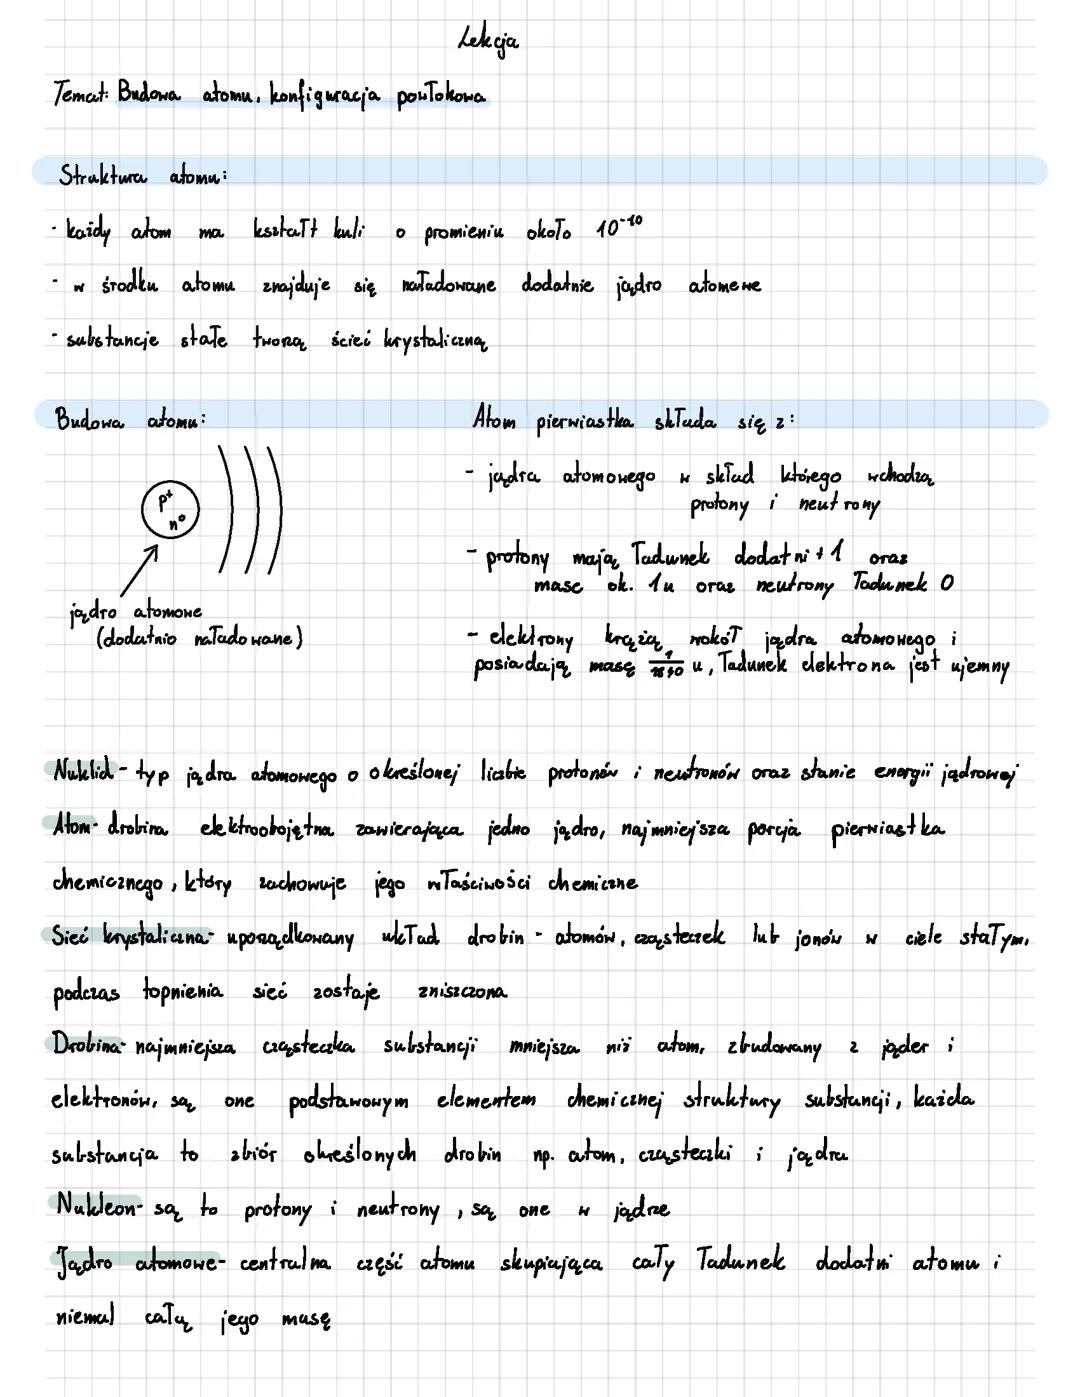 Lekcja
Temat: Budowa atomu, konfiguracja powłokowa
Struktura atomu:
- każdy atom ma kształt kuli o promieniu około 10⁻¹⁰
- w środku atomu znajduje się naładowane dodatnie jądro atomowe
- substancje stałe tworzą ścieć krystaliczną
Budowa atomu:
Atom pierwiastka składa się z:
p⁺
n⁰
jądro atomowe
(dodatnio naładowane)
- jądra atomowego w skład którego wchodzą
protony i neutrony
- protony mają ładunek dodatni +1 oraz
masę ok. 1u oraz neutrony ładunek 0
- elektrony krążą wokół jądra atomowego i
posiadają masę 1/1840 u, ładunek elektrona jest ujemny
Nuklid - typ jądra atomowego o określonej liczbie protonów i neutronów oraz stanie energii jądrowej
Atom - drobina elektroobojętna zawierająca jedno jądro, najmniejsza porcja pierwiastka
chemicznego, który zachowuje jego właściwości chemiczne
Sieć krystaliczna - uporządkowany układ drobin - atomów, cząsteczek lub jonów w ciele stałym,
podczas topnienia sieć zostaje zniszczona
Drobina - najmniejsza cząsteczka substancji mniejsza niż atom, zbudowany z jąder i
elektronów, są one podstawowym elementem chemicznej struktury substancji, każda
substancja to zbiór określonych drobin np. atom, cząsteczki i jądra
Nukleon - są to protony i neutrony, są one w jądrze
Jądro atomowe - centralna część atomu skupiająca cały ładunek dodatni atomu i
niemal całą jego masę